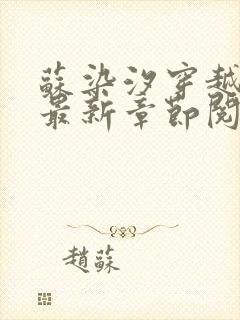 蘇染汐穿越
最新章節閱
趙蘇